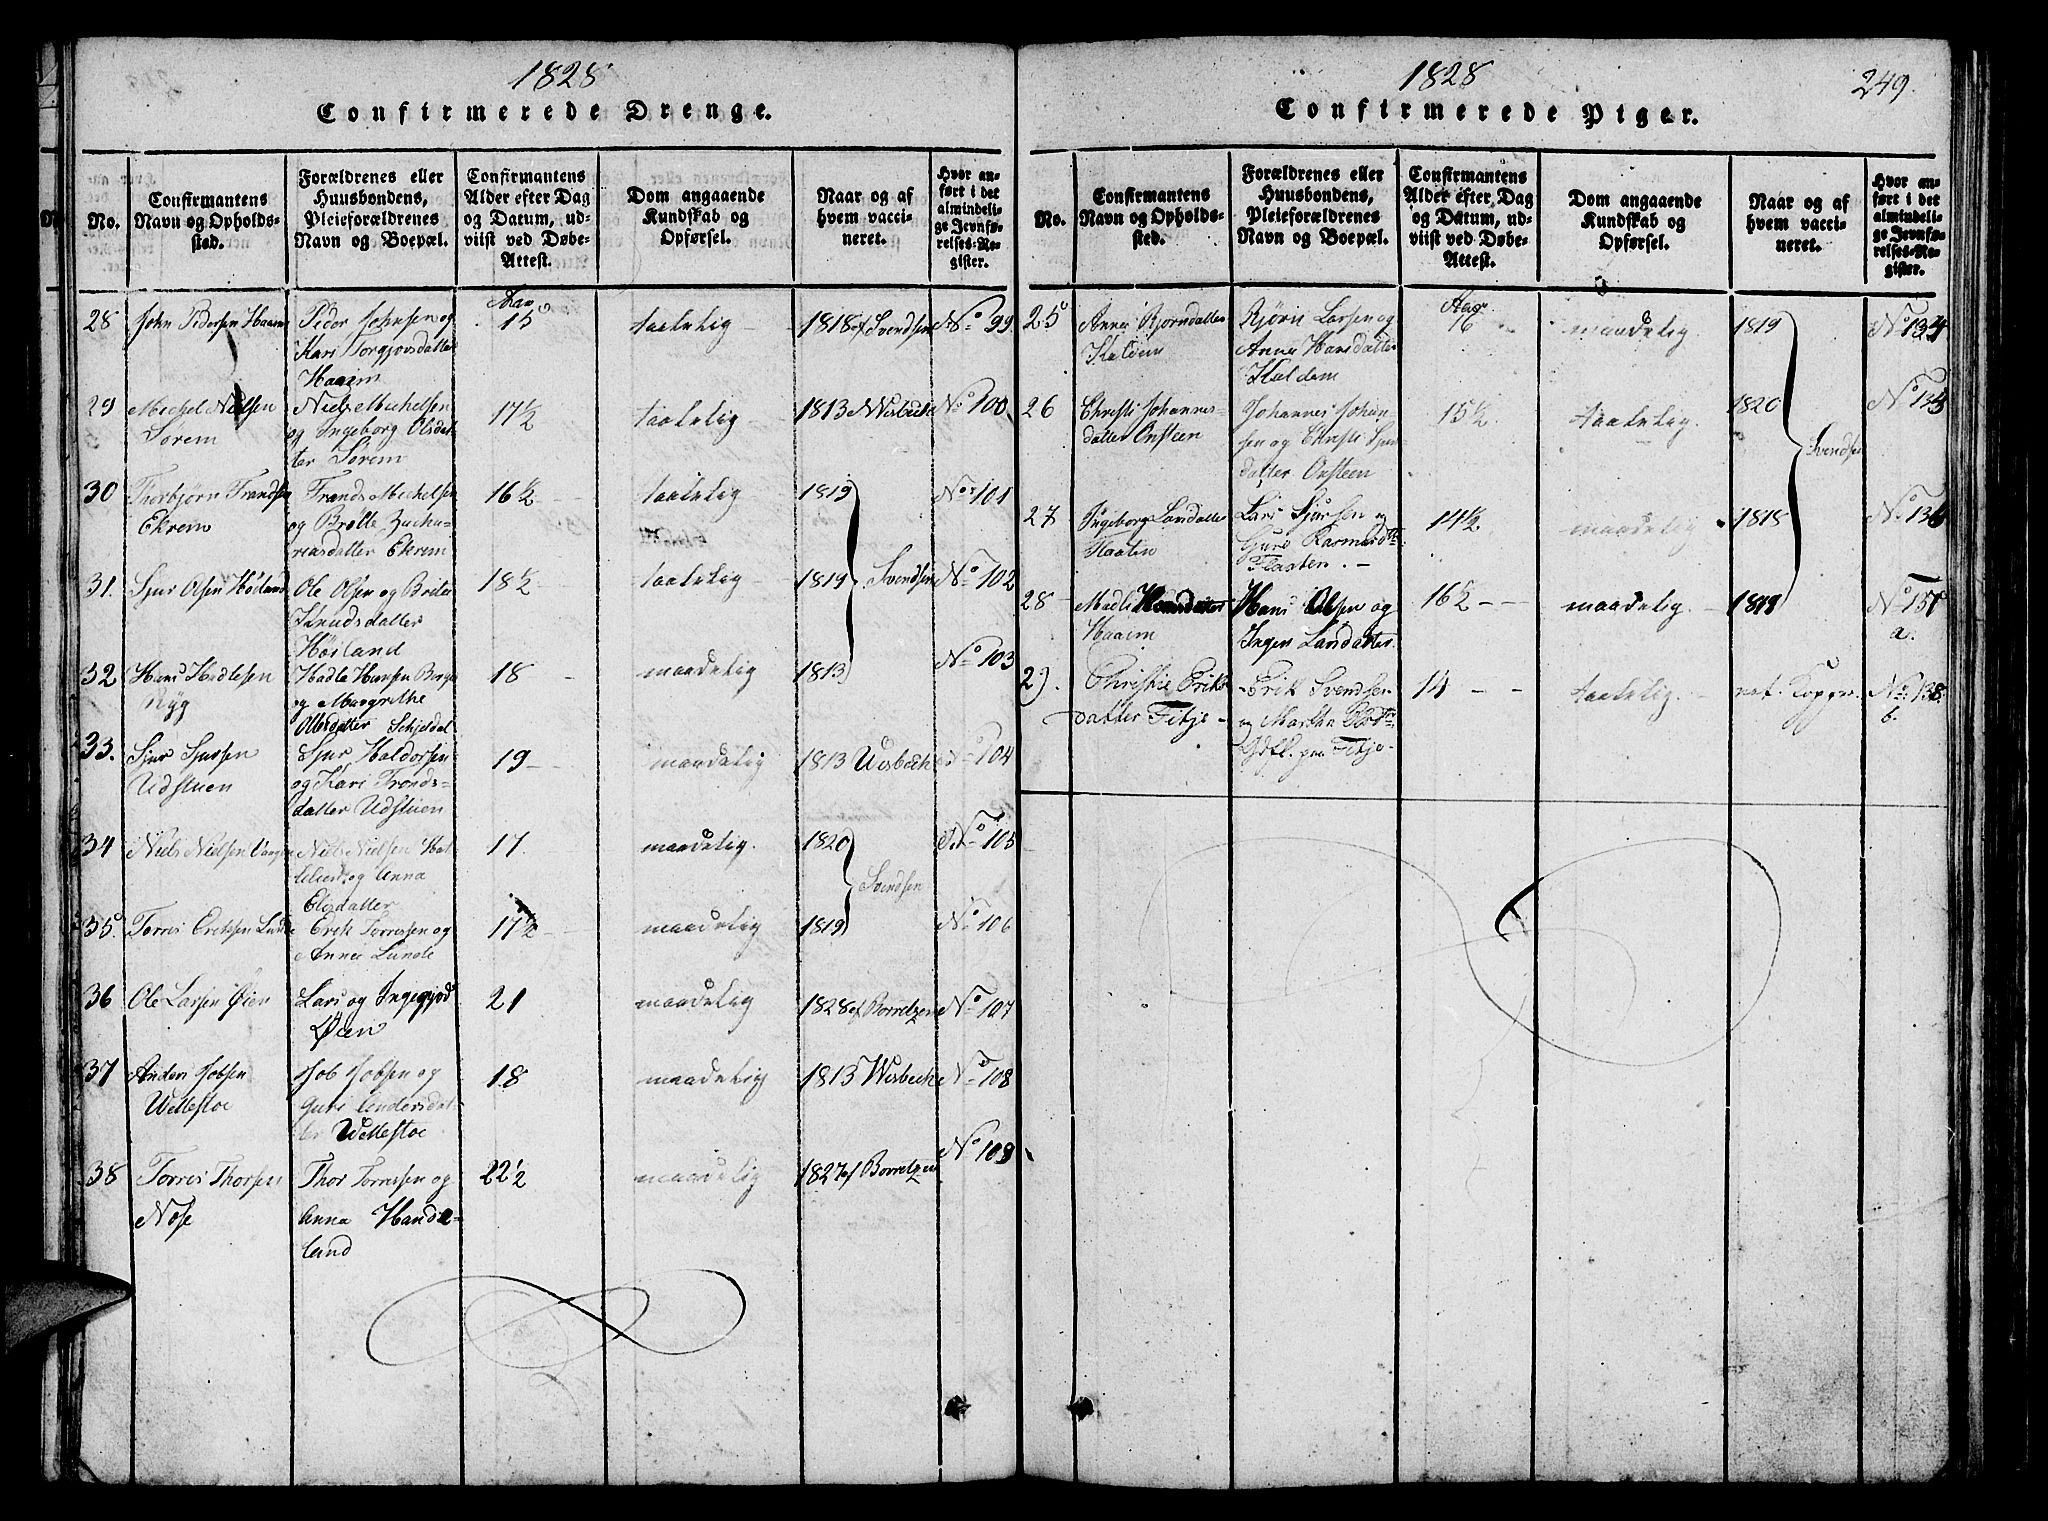 1828
Confirmerede Drenge.
No.
Confirmantens Navn og Opholdssted.
Forældrenes eller Huusbondens, Pleieforældrenes Navn og Boepæl.
Confirmantens Alder efter Dag og Datum, udviist ved Døbe-Attest.
Dom angaaende Kundskab og Opførsel.
Naar og af hvem vaccineret.
Hvor anført i det almindelige Jevnførelses-Register.
Aar
28 John Pedersen Haaim
Peder Johnsen og
Kari Torgjersdatter
Haaim
15 taalelig 1818 af Svendsen No 99
29 Michel Nielsen
Sørem
Niels Michelsen
og Ingeborg Olsdat-
ter Sørem
17½ taalelig 1813 Wisbech No 100
30 Thorbjørn Frandsen
Ekrem
Frands Michelsen
og Brötte Zacha-
riasdatter Ekrem
16½ taalelig 1819 No 101
31. Sjur Olsen Höiland
Ole Olsen og Brite
Knudsdatter
Höiland
18½ taalelig 1819 Svendsen No 102
32 Hans Hadlesen
Ryg
Hadle Hansen Berge
og Margrethe
Olesdatter Schjeldal
18 maadelig 1813 No 103
33. Sjur Sjursen
Udstuen
Sjur Haldorsen
og Kari Tronds-
datter Udstuen
19 maadelig 1813 Wisbech No 104
34 Niels Nielsen
Niels Nielsen
og Anna
Elisdatter
17 maadelig. 1820 No 105
Svendsen
35. Torres Eriksen Lunde
Erik Torressen og
Anna Lunde
17½ maadelig 1819 No 106
36 Ole Larsen Øien
Lars og Ingegjerd
Øien
21 maadelig 1828 af Borretzen No 107
37 Anders Jobsen
Wellestoe
Job Jobsen og
Guri Andersdat-
ter Wellestoe
18 maadelig 1813 Wisbech No 108
38 Torres Thorsen
Nose
Thor Torressen og
Anna Hande-
land
22½ maadelig 1827 af Borretzen No 109
1828
249.
Confirmerede Piger.
No.
Confirmantens Navn og Opholdssted.
Forældrenes eller Huusbondens, Pleieforældrenes Navn og Boepæl.
Confirmantens Alder efter Dag og Datum, udviist ved Døbe-Attest.
Dom angaaende Kundskab og Opførsel.
Naar og af hvem vaccineret.
Hvor anført i det almindelige Jevnførelses-Register.
Aar
25 Anna Bjørndatter
Kaldem
Bjørn Larsen og
Anna Hansdatter
Kaldem
16 maadelig 1819 No 134
26 Christi Johannes-
datter Onsteen
Johannes Johan-
sen og Christi
datter Onsteen
15½ taalelig. 1820 No 135
Svendsen
27 Ingeborg Larsdatter
Flaaten
Lars Sjursen og
Guro Rasmusd
Flaaten.
14½ maadelig 1818 No 136
28 Madli Hansdatter
Haaim
Hans Olsen og
Inger Larsdatter
16½ maadelig. 1819 No 137
a.
29. Christie Eriks-
datter Fitje
Erik Svendsen
og Martha
paa Fitje
14 taalelig. nat. Kopper No 138.
b.